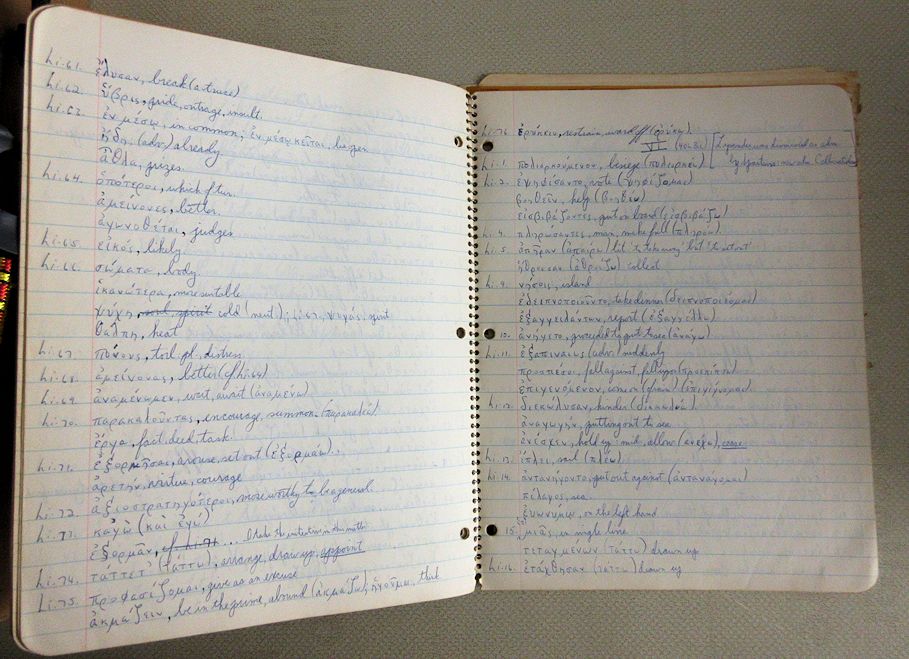 Li. 61. ἔλυσαν, break (a truce)
Li. 62. ὕβρις, pride, outrage, insult.
Li. 63. ἐν μέσῳ, in common; ἐν μέσῳ κεῖται,
ἤδη, (adv) already
ἆθλα, prizes.
Li. 64. ὁπότεροι, which of two.
ἀμείνονες, better.
ἀγωνοθέται, judges
Li. 65. εἰκός, likely
Li. 66. σώματα, body.
ἱκανώτερα, more suitable
ψύχη, cold (neut); Li. 67, ψυχάς, spirit
θάλπη, heat
Li. 67. πόνους, toil. pl. distress
Li. 68. ἀμείνονας, better (cf. Li. 64)
Li. 69. ἀναμένωμεν, wait, await (ἀναμένω)
Li. 70. παρακαλοῦντας, encourage, summon (παρακαλέω)
ἔργα, fact, deed, task.
Li. 71. ἐξορμῆσαι, arouse, set out (ἐξορμάω).
ἀρετήν, virtue, courage
Li. 72. ἀξιοστρατηγότεροι, more worthy to be a general.
Li. 73. κἀγώ (καὶ ἐγώ)
ἐξορμᾶν, cf. Li. 71.... I take the initiative in this matter
Li. 74. τάττετ' (τάττω), arrange, draw up, appoint
Li. 75. προφασίζομαι, give as an excuse
ἀκμάζειν, be in the prime, abound (ἀκμάζω), ἡγοῦμαι, think
Li. 76. ἐρύκειν, restrain, ward off (ἐρύκω).
VI (406 BC) [Lysander was dismissed as adm
Li. 1. πολιορκούμενον, besiege (πολιορκέω) by Spartans new adm. Callicratidas
Li. 2. ἐψηφίσαντο, vote (ψηφίζομαι)
βοηθεῖν, help (βοηθέω)
εἰσβιβάζοντες, put on board (εἰσβιβάζω)
Li. 4. πληρώσαντες, man, make full (πληρόω)
Li. 5. ἀπῆραν (ἀπαίρω) lit. 'to take away' but 'to set out'
ἤθροισαν (ἀθροίζω) collect
Li. 9. νήσοις, island
ἐδειπνοποιοῦντο, take dinner (δειπνοποιέομαι)
ἐξαγγειλάντων, report (ἐξαγγέλλω)
10. ἀνήγετο, proceeded to put to sea (ἀνάγω)
Li. 11. ἐξαπιναίως (adv) suddenly
προσπέσοι, fall against, fall upon (προσπίπτω)
ἐπιγενόμενον, came on (of rain) (ἐπιγίγνομαι)
Li. 12. διεκώλυσαν, hinder (διακωλύω)
ἀναγωγήν, putting out to sea
ἀνέσχεν, hold up: mid., allow (ἀνέχω), cease
Li. 13. ἔπλει, sail (πλέω)
Li. 14. ἀντανήγοντο, put out against (ἀντανάγομαι)
πέλαγος, sea.
εὐωνύμῳ, on the left hand
15. ἐπὶ μιᾶς, in single line
τεταγμένων (τάττω) drawn up
Li. 16. ἐτάχθησαν (τάττω) drawn up